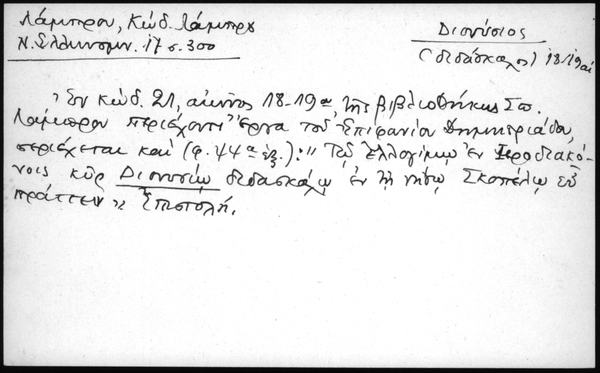 Λάμπρου, Κώδ. Λάμπρου
Ν. Ἑλληνομν. 17 σ. 300
Διονύσιος
(διδάσκαλος) 18-19 αἰ
Ἐν κώδ. 21, αἰῶνος 18-19ου τῆς βιβλιοθήκης Σπ.
Λάμπρου περιέχοντι ἔργα τοῦ Ἐπιφανίου Δημητριάδου,
περιέχεται καὶ (φ. 44α ἑξ.): "Τῷ ἐλλογίμῳ ἐν Ἱεροδιακό-
νοις κὺρ Διονυσίῳ διδασκάλῳ ἐν τῇ νήσῳ Σκοπέλῳ εὖ
πράττειν" Ἐπιστολή.